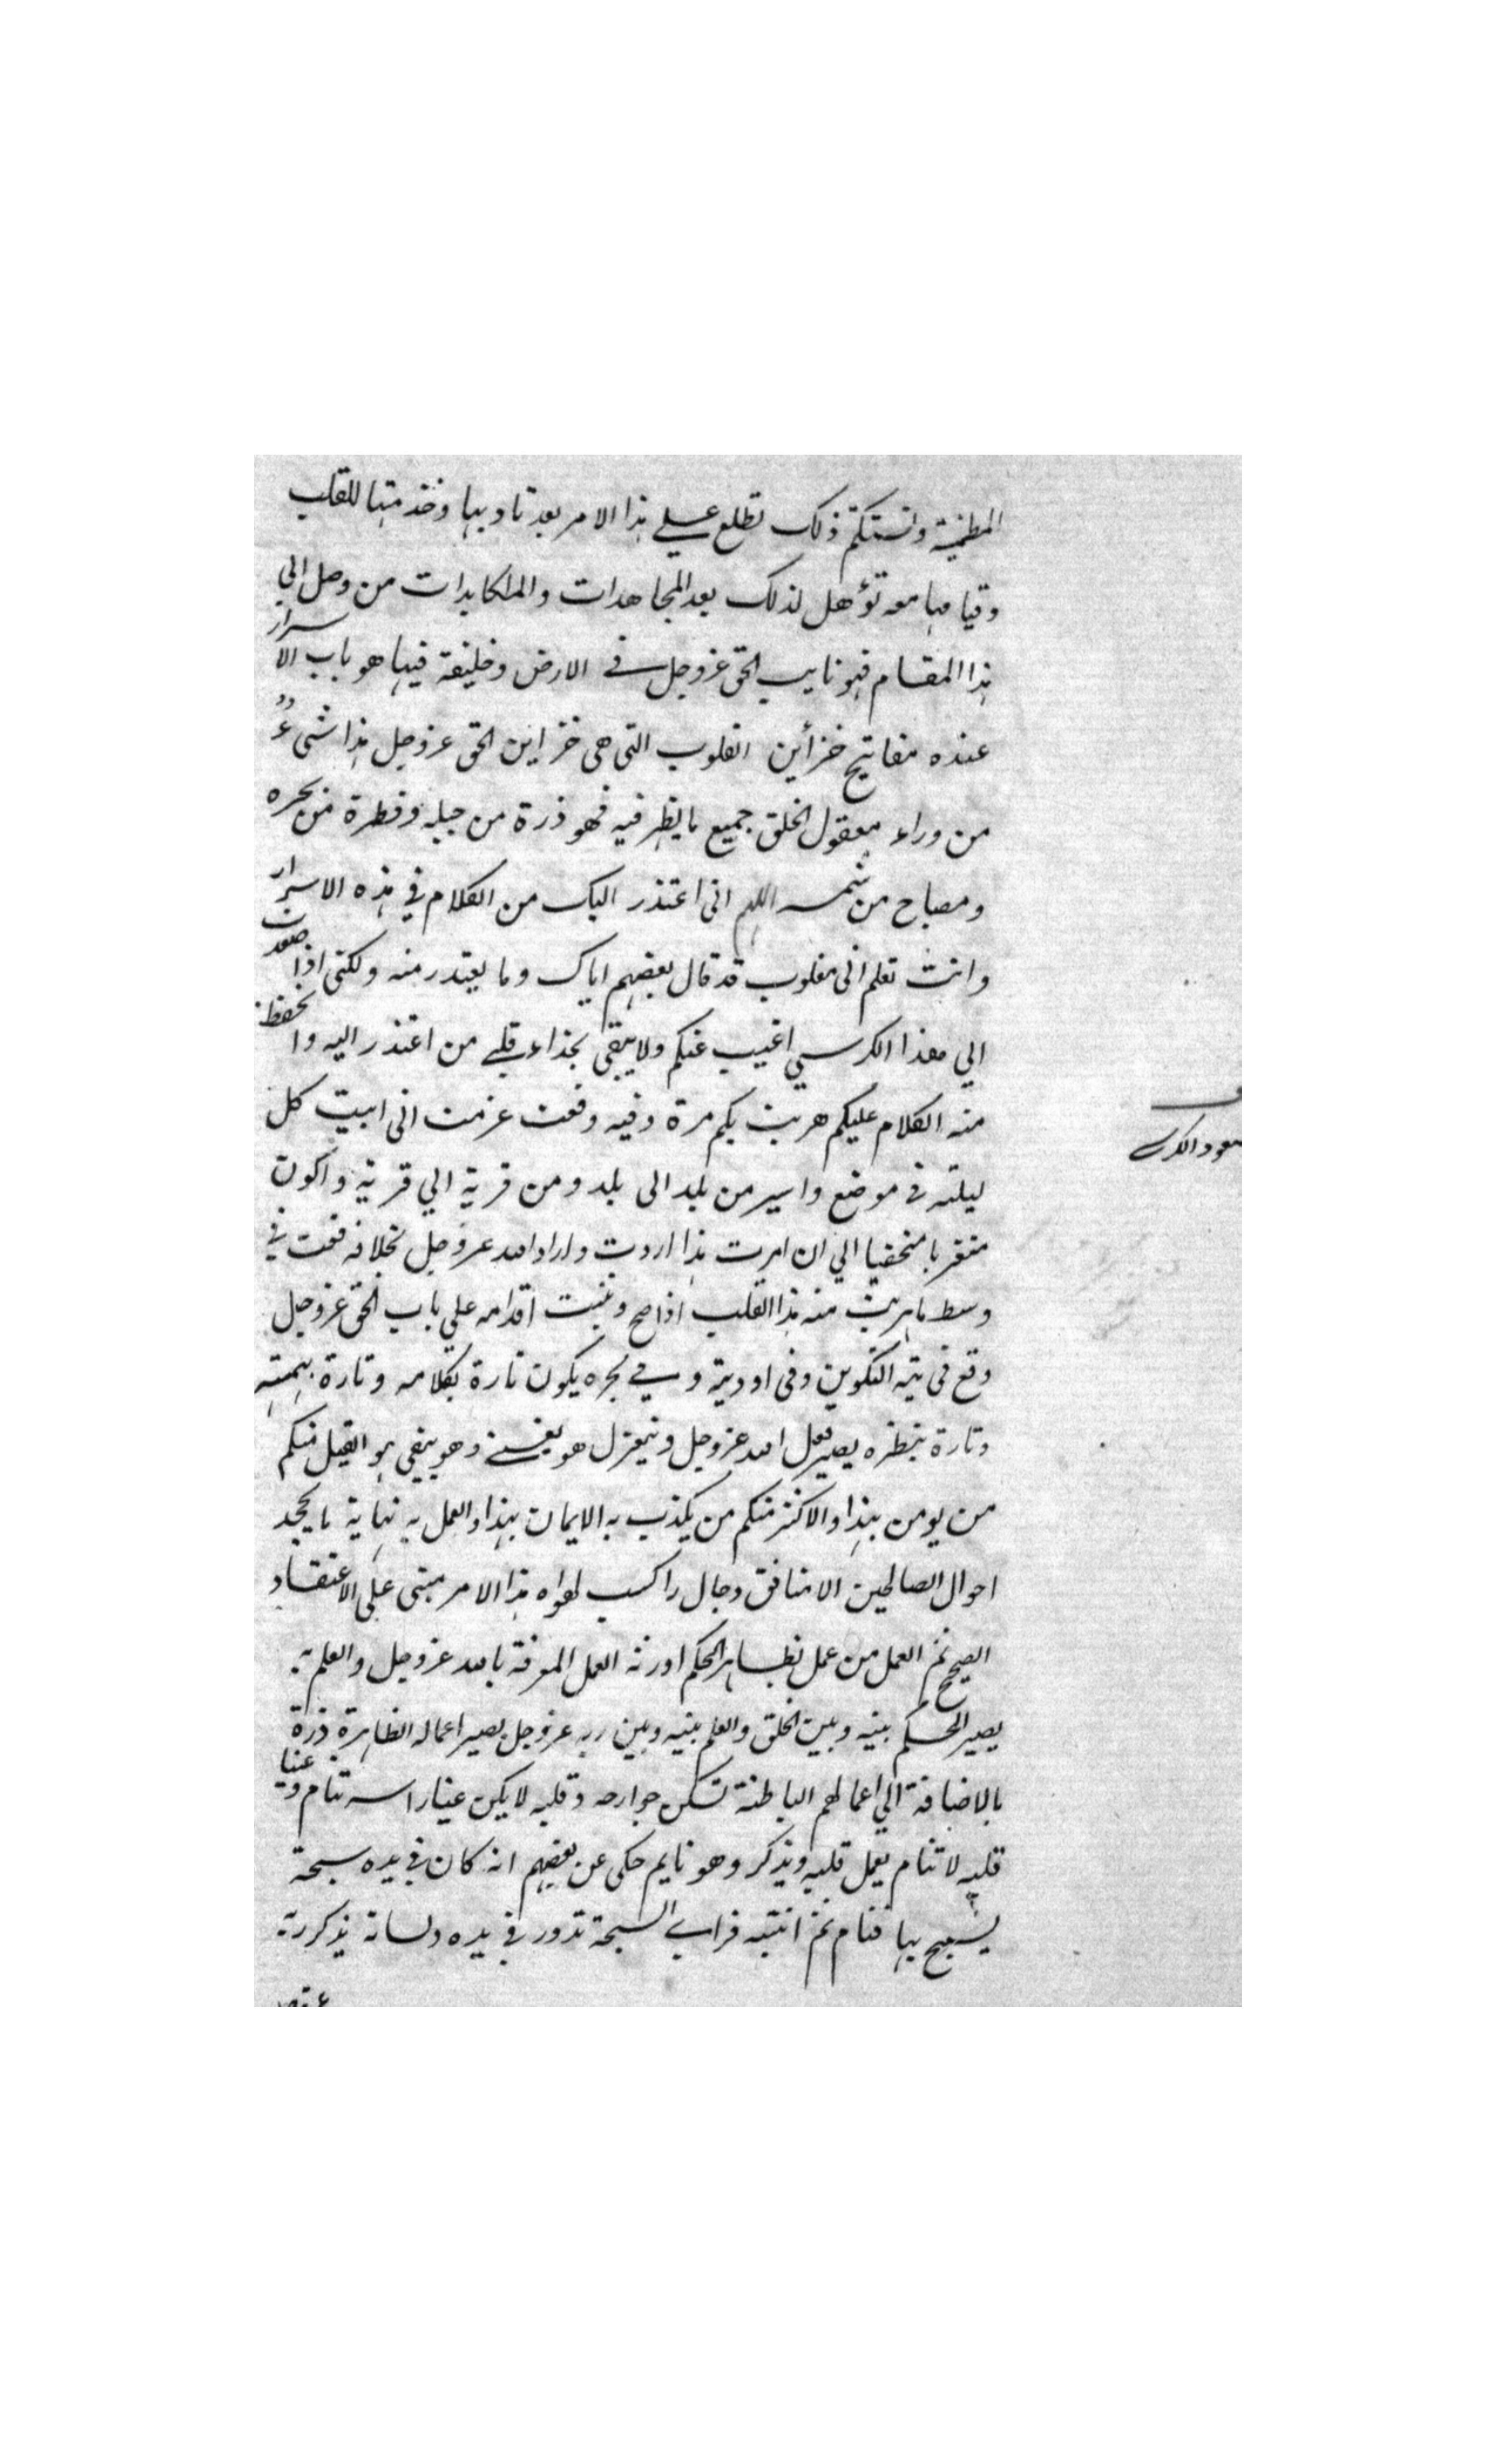 المطمئنة وتستكتم ذلك تطلع علي هذا الامر بعد تاديبها وخدمتها للقلب
وقيامها معه تؤهل لذلك بعد المجاهدات والمكابدات من وصل الي
هذا المقام فهو نايب الحق عزوجل في الارض وخليفة فيها هو باب الاسرار
عنده مفاتيح خزأين القلوب التى هى خزاين الحق عزوجل هذا شىءٌ
من وراء معقول الخلق جميع ما يظهر فيه فهو ذرة من جبله وقطرة من بحره
ومصباح من شمسه اللهم انى اعتذر اليك من الكلام في هذه الاسرار
وانت تعلم انى مغلوب قد قال بعضهم اياك وما يعتذر منه ولكنى اذا صعدت
الي هذا الكرسي اغيب عنكم ولا يبقى بحذاء قلبي من اعتذر اليه واتحفظ
منه الكلام عليكم هربت بكم مرة وفيه وقعت عزمت انى ابيت كل
ليلة في موضع واسير من بلد الى بلد ومن قرية الي قرية واكون
متغربا متخفيا الي ان اموت هذا اردت واراد الله عزوجل بخلافه فقمت في
وسط ما هربت منه هذا القلب اذا صح وثبتت اقدامه علي باب الحق عزوجل
وقع فى تيه التكوين وفى اودية وفي بحره يكون تارة بكلامه وتارة بهمته
وتارة بنظره يصير فعل الله عزوجل وينعزل هو يفنى وهو يبقي هو القيل منكم
من يومن بهذا والاكثر منكم من يكذب به الايمان بهذا والعمل به نهاية ما يجحد
احوال الصالحين الا منافق دجال راكب لهواه هذا الامر مبنى على الاعتقاد
الصحيح ثم العمل من عمل بظاهر الحكم اورثه العمل المعرفة بالله عزوجل والعلم به
يصير الحكم بينه وبين الخلق والعلم بينه وبين ربه عزوجل يصير اعماله الظاهرة ذرة
بالاضافة الي اعمالهم الباطنة تسكن جوارحه وقلبه لا يكن عينا راسه تنام وعينا
قلبه لا تنام يعمل قلبه ويذكر وهو نايم حكى عن بعضهم انه كان في يده سبحة
يسبح بها فنام ثم انتبه فراي السبحة تدور في يده ولسانه يذكر ربه
صعود الكرسي